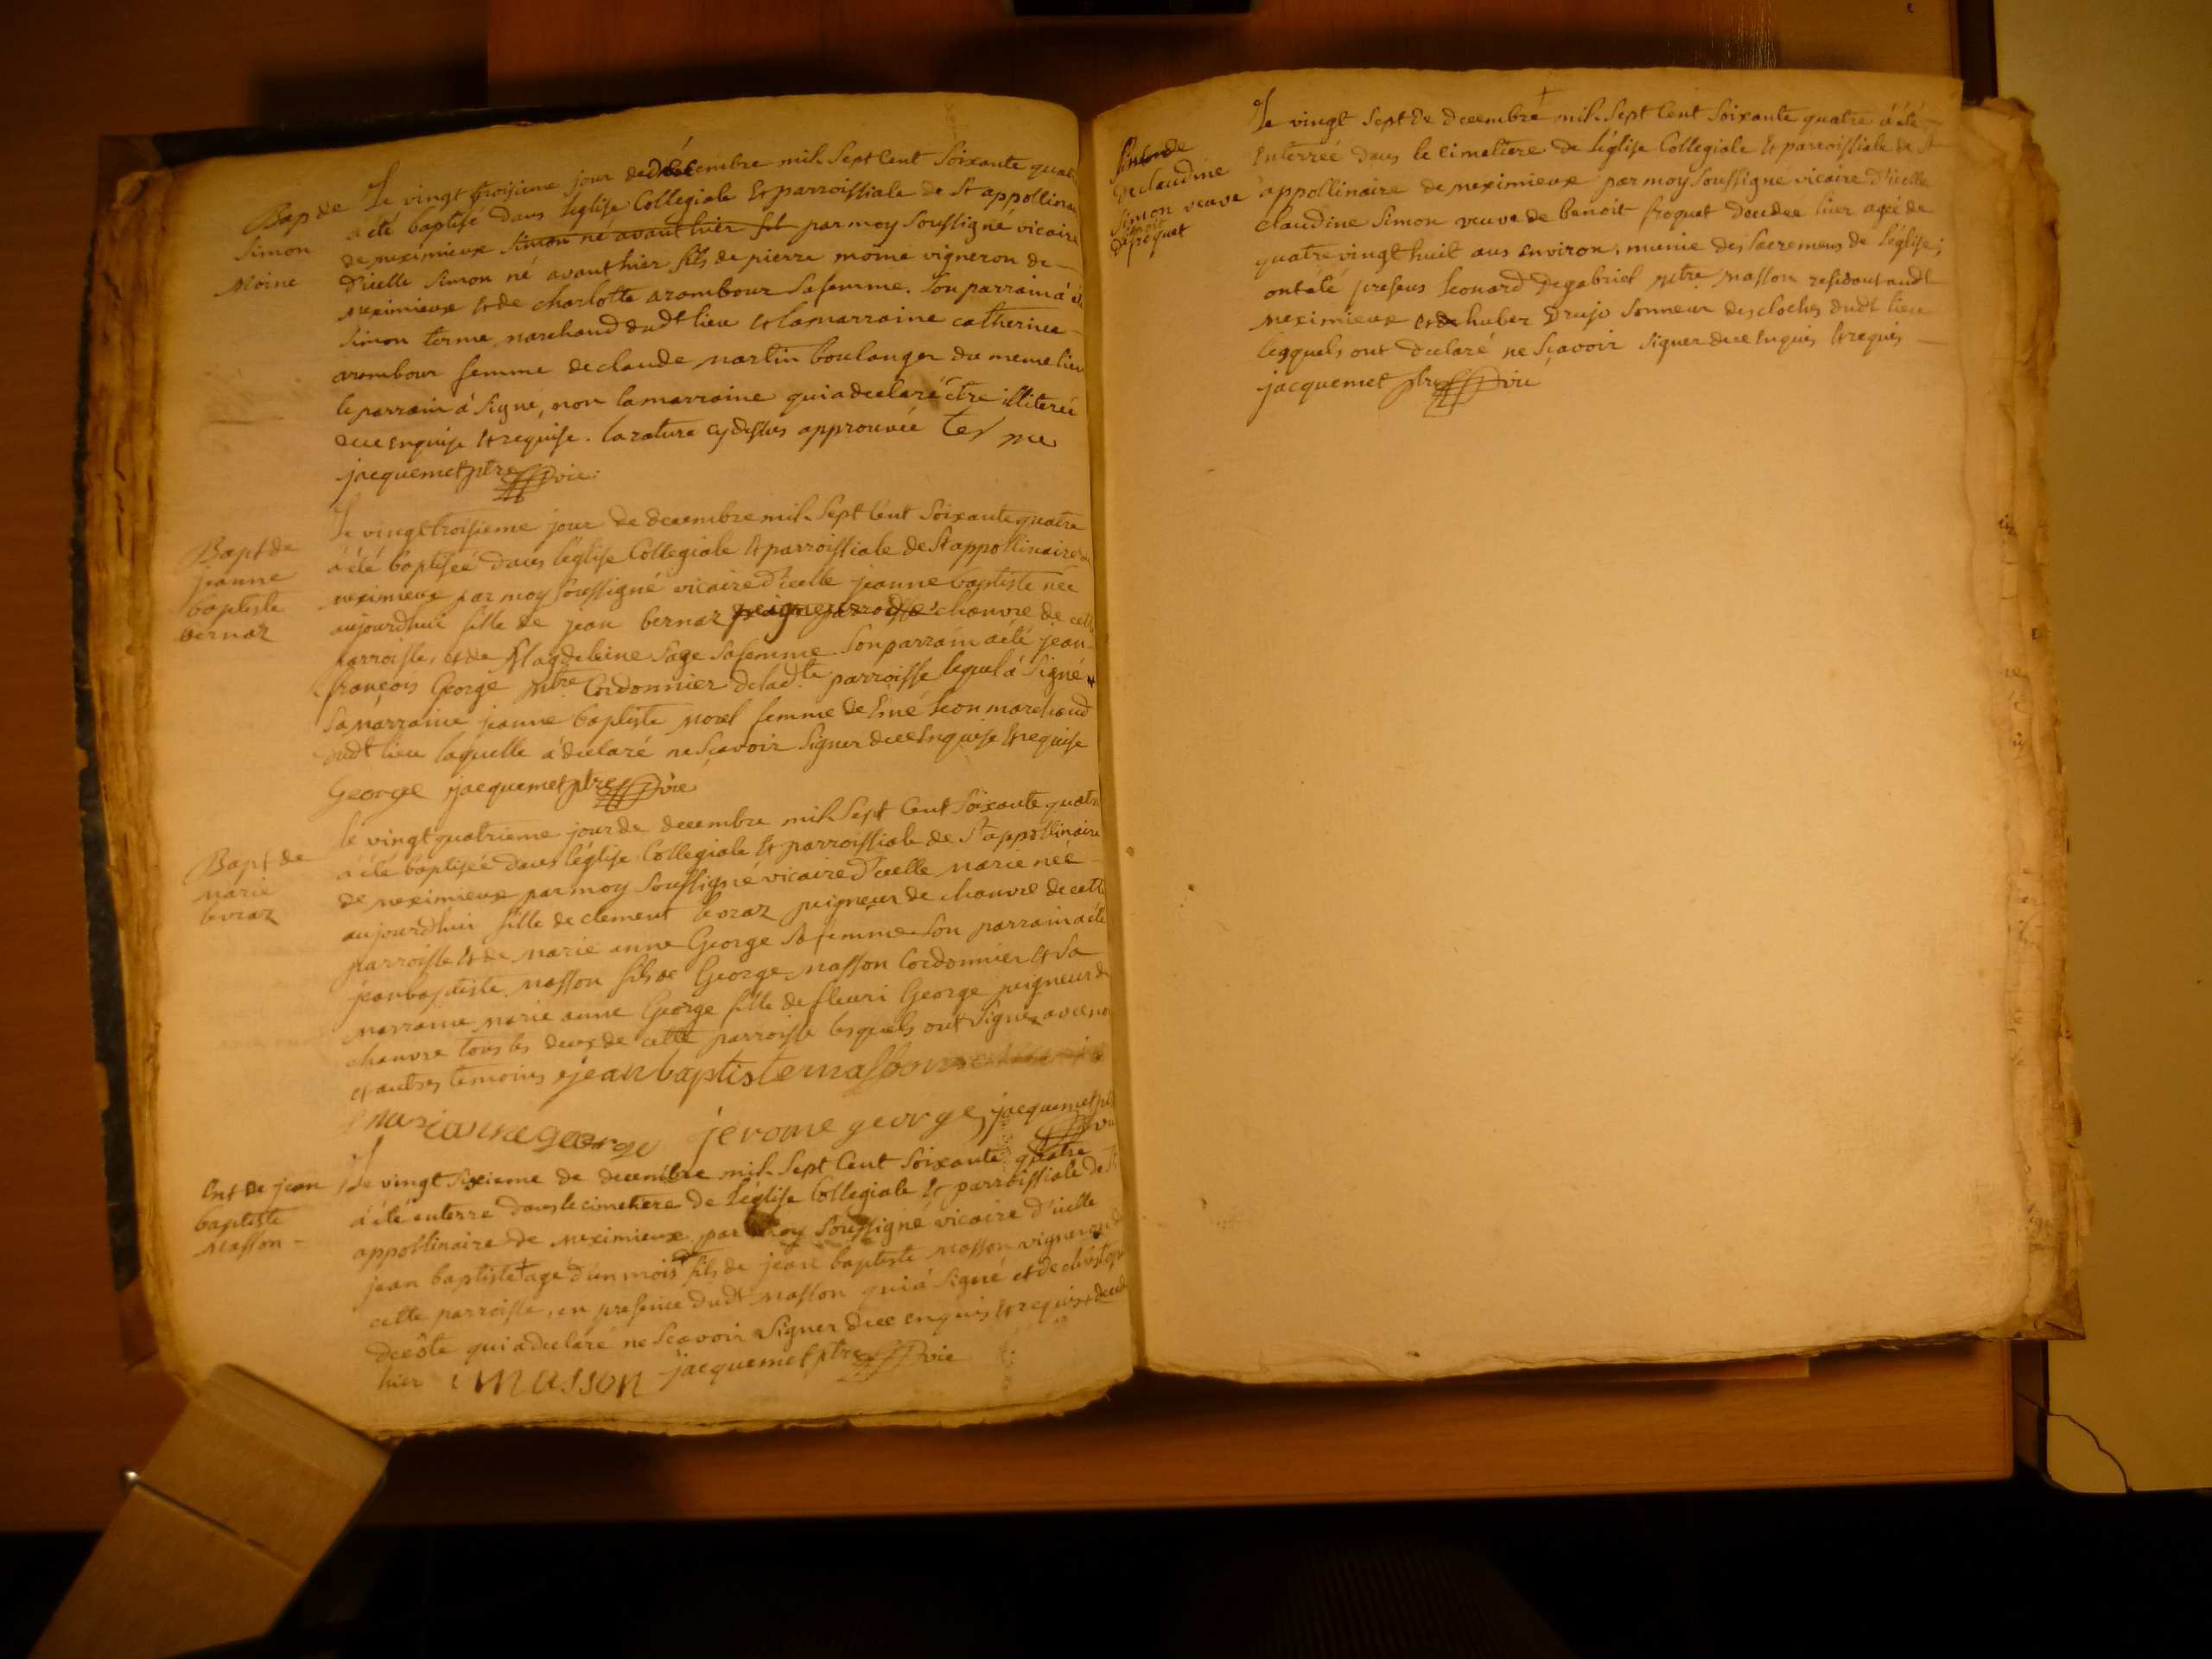 Bap de
Simon
Moine
Le vingt troisieme jour de décembre mil Sept Cent Soixante quat
a été baptisé dans leglise Collegiale et parroissiale de St appollina
de meximieux Simon né avant hier fil par moy Soussigné vicaire
d'icelle Simon né avant hier fils de pierre moine vigneron de
meximieux et de charlotte arambour sa femme. Son parrain à
Simon terme, marchand dudt lieu et la marraine catherine
arambour femme de claude martin boulanger du meme lieu
le parrain à Signé, non la marraine qui a declaré être illiterée
de ce enquise et requise. la rature cy dessus approuvée Terme
jacquemet ptre vic:
Bapt de
jeanne
baptiste
bernaz
Le vingt troisieme jour de decembre mil Sept Cent Soixante quatre
à été baptisée dans l'église Collegiale et parroissiale de St appollinaire
meximieux par moy Soussigné vicaire d'icelle jeanne baptiste née
aujourdhui fille de jean bernaz chanvre de cette
parroisse, et de Magdeleine Sage Sa femme. Son parrain a été jean
françois George mtre Cordonnier de lad.te parroisse lequel à Signé
Sa marraine jeanne baptiste morel femme de marchand
dudt lieu laquelle à declaré ne Scavoir Signer de ce Enquise et requise
George jacquemet ptre vic
Bapt de
marie
boraz
le vingt quatrieme jour de decembre mil Sept Cent Soixante quatre
à été baptisée dans l'église Collegiale et parroissiale de St appollinaire
de meximieux par moy Soussigné vicaire d'icelle marie née
aujourdhui fille de clement boraz peigneur de chanvre de cette
parroisse et de marie anne George Sa femme. Son parrain a été
jean baptiste masson fils de George masson Cordonnier et Sa
marraine marie anne George fille de fleuri George peigneur de
chanvre tous les deux de cette parroisse lesquels ont Signé avec no
et autres temoins jean baptiste masson
mariane george jerome george jacquemet pt
vi
Ent de jean
baptiste
masson -
Le vingt Sixieme de decembre mil Sept Cent Soixante quatre
à été enterre dans le cimetiere de l'église Collegiale et parroissiale de St
appollinaire de meximieux par moy Soussigné vicaire d'icelle
jean baptiste agé d'un mois fils de jean baptiste masson vigneron de
cette parroisse, en presence dudt masson qui à Signé et de christop
qui a declaré ne Scavoir Signer de ce enquis et requis
hier masson jacquemet ptre vic
de claudine
Simon veuve
de froquet
Le vingt Sept de decembre mil Sept Cent Soixante quatre à été
Enterrée dans le Cimetiere de l'église Collegiale et parroissiale de St
appollinaire de meximieux par moy Soussigné vicaire d'icelle
claudine Simon veuve de benoit froquet decedée hier agée de
quatre vingt huit ans environ, munie des Sacremens de l'église;
ont été presens Leonard degabriel mtre masson residant audt
meximieux et de huber Drujo Sonneur des cloches dudt lieu
lesquels ont declaré ne Sçavoir Signer de ce Enquis et requis
jacquemet ptre vic